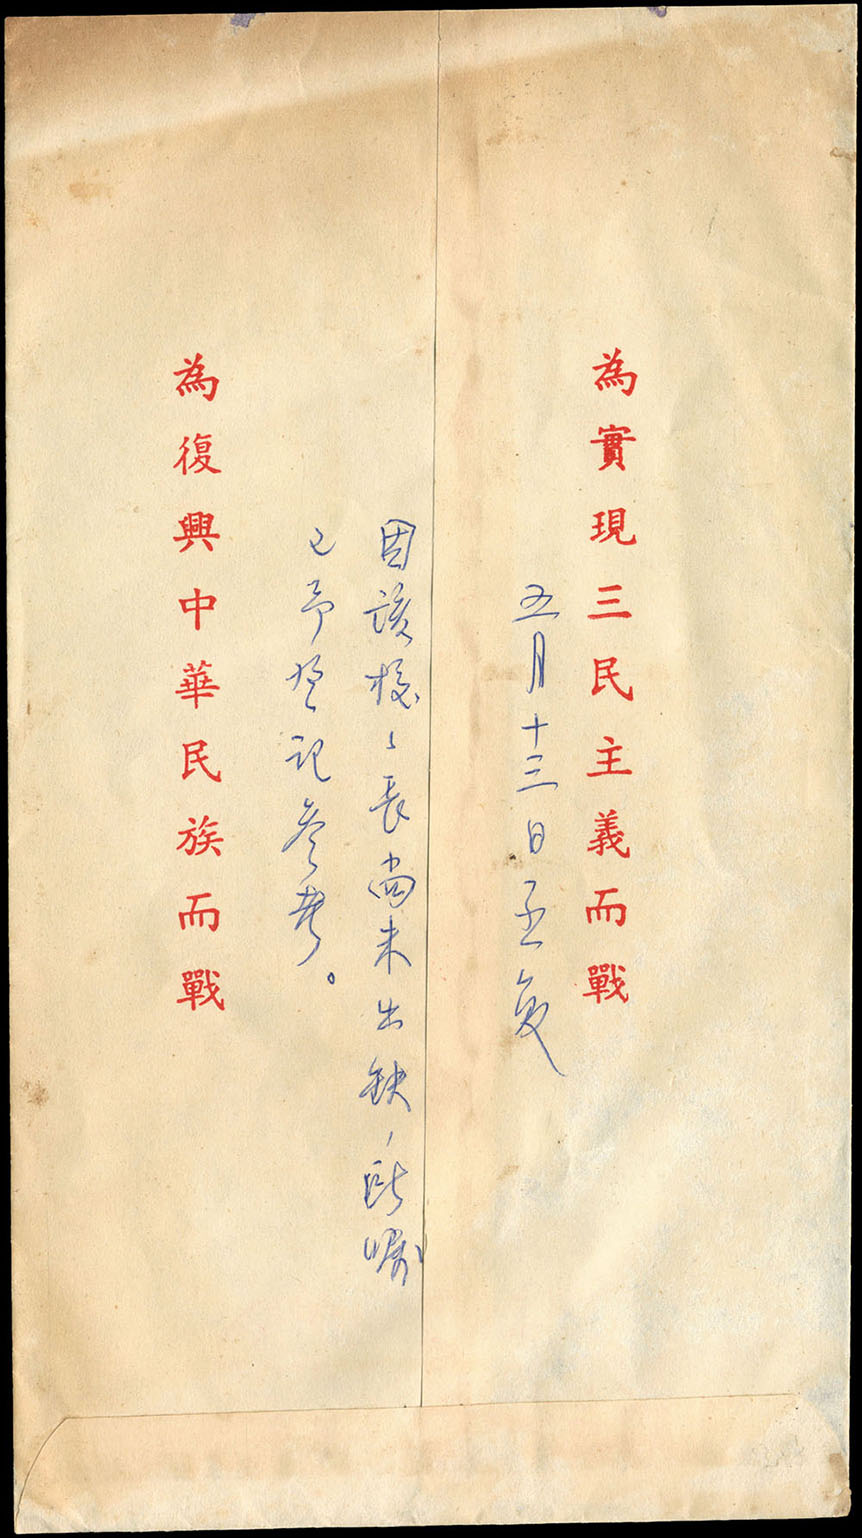 為實現三民主義而戰
五月十三日函复
因該校々長尚未出缺,所囑
已予登記參考。
為復興中華民族而戰